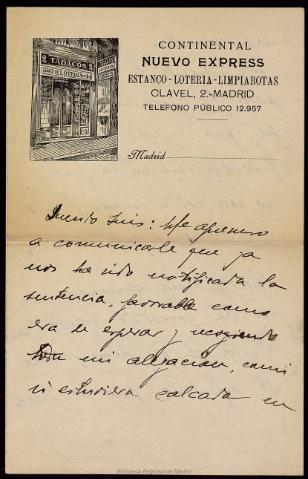 TABACOS
CONTINENTAL
NUEVO EXPRESS
ESTANCO-LOTERIA-LIMPIABOTAS
CLAVEL, 2.-MADRID
TELEFONO PÚBLICO 12.957
Madrid
Querido Luis: Me apresuro
a comunicarle que ya
nos ha sido notificada la
sentencia, favorable como
era de esperar y recogiendo
mi alegación, como
si estuviera calcada en
Biblioteca Regional de Madrid